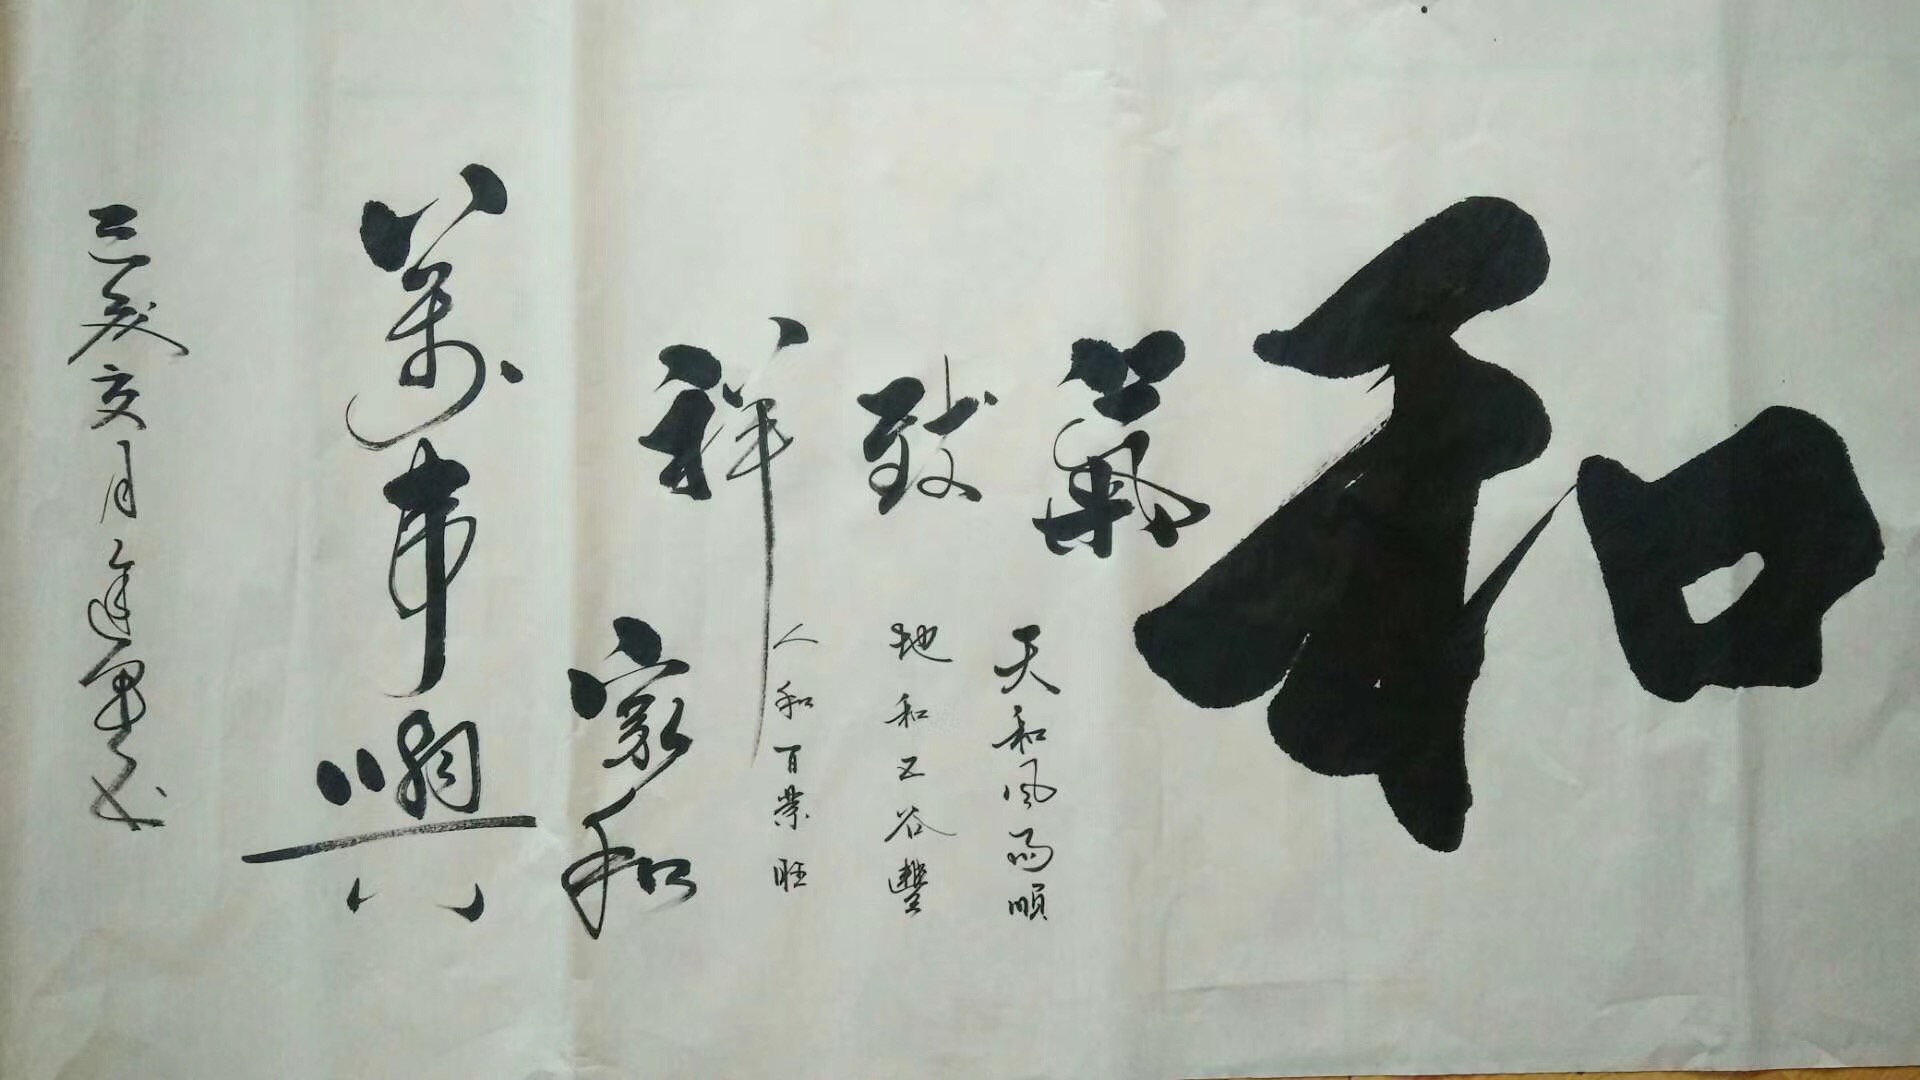 和
氣致祥
天和風雨順
地和五谷豐
人和百業旺
家和
萬事興
亥月